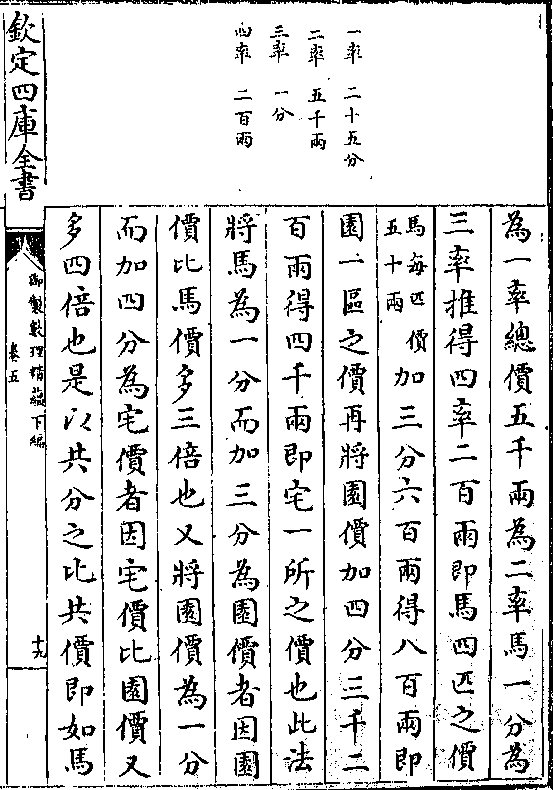 一率　二十五分
二率　五千兩
三率　一分
四率　二百兩
為一率總價五千兩為二率馬一分為
三率推得四率二百兩即馬四匹之價
馬每匹價五十兩加三分六百兩得八百兩即
園一區之價再將園價加四分三千二
百兩得四千兩即宅一所之價也此法
將馬為一分而加三分為園價者因園
價比馬價多三倍也又將園價為一分
而加四分為宅價者因宅價比園價又
多四倍也是以共分之比共價即如馬
欽定四庫全書
御製數理精蘊下編
卷五
十九